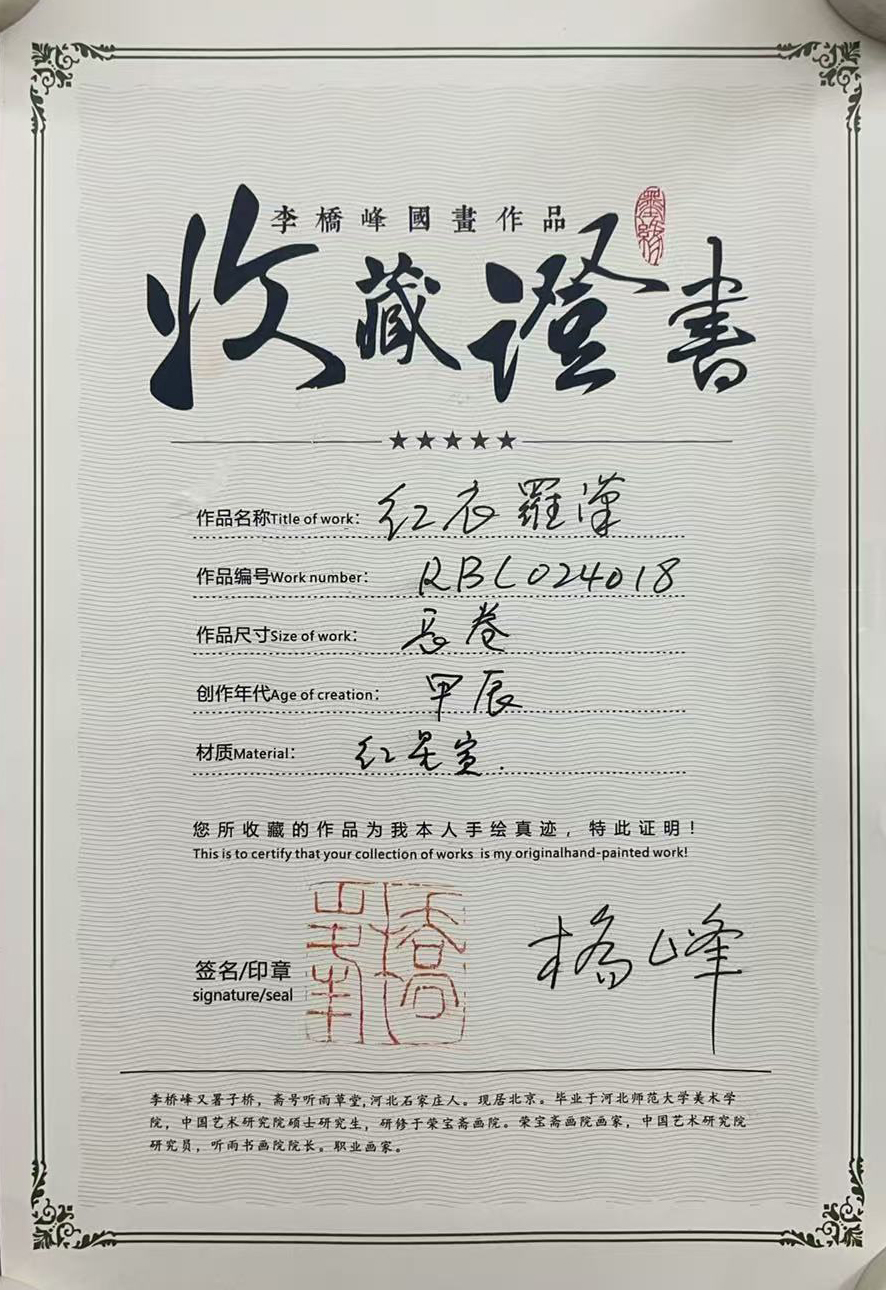 李橋峰國畫作品
收藏證書
墨緣
★★★★★
作品名称Title of work： 红衣羅漢
作品编号Work number： RBC024018
作品尺寸Size of work： 長卷
创作年代Age of creation： 甲辰
材质Material： 红星宣.
您所收藏的作品为我本人手绘真迹，特此证明！
This is to certify that your collection of works is my originalhand-painted work!
橋峰
签名/印章 橋峰
signature/seal
李桥峰又署子桥，斋号听雨草堂,河北石家庄人。现居北京。毕业于河北师范大学美术学
院，中国艺术研究院硕士研究生，研修于荣宝斋画院。荣宝斋画院画家，中国艺术研究院
研究員，听雨书画院院长。职业画家。